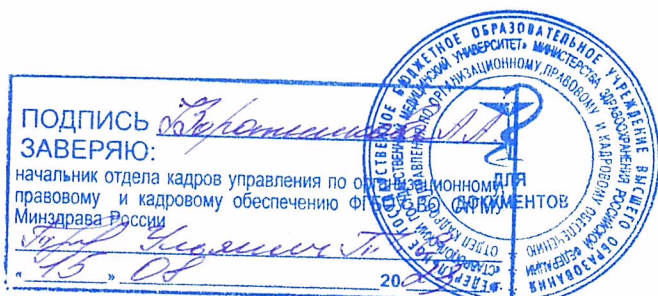 ПОДПИСЬ А.А.
ЗАВЕРЯЮ:
начальник отдела кадров управления по организационному
правовому и кадровому обеспечению ФГБОУ ВО СтГМУ
Минздрава России
« 15 » 08 20
ФЕДЕРАЛЬНОЕ ГОСУДАРСТВЕННОЕ БЮДЖЕТНОЕ ОБРАЗОВАТЕЛЬНОЕ УЧРЕЖДЕНИЕ ВЫСШЕГО ОБРАЗОВАНИЯ
«СТАВРОПОЛЬСКИЙ ГОСУДАРСТВЕННЫЙ МЕДИЦИНСКИЙ УНИВЕРСИТЕТ» МИНИСТЕРСТВА ЗДРАВООХРАНЕНИЯ РОССИЙСКОЙ ФЕДЕРАЦИИ
ОТДЕЛ КАДРОВ УПРАВЛЕНИЯ ПО ОРГАНИЗАЦИОННОМУ, ПРАВОВОМУ И КАДРОВОМУ ОБЕСПЕЧЕНИЮ
ДЛЯ
ДОКУМЕНТОВ